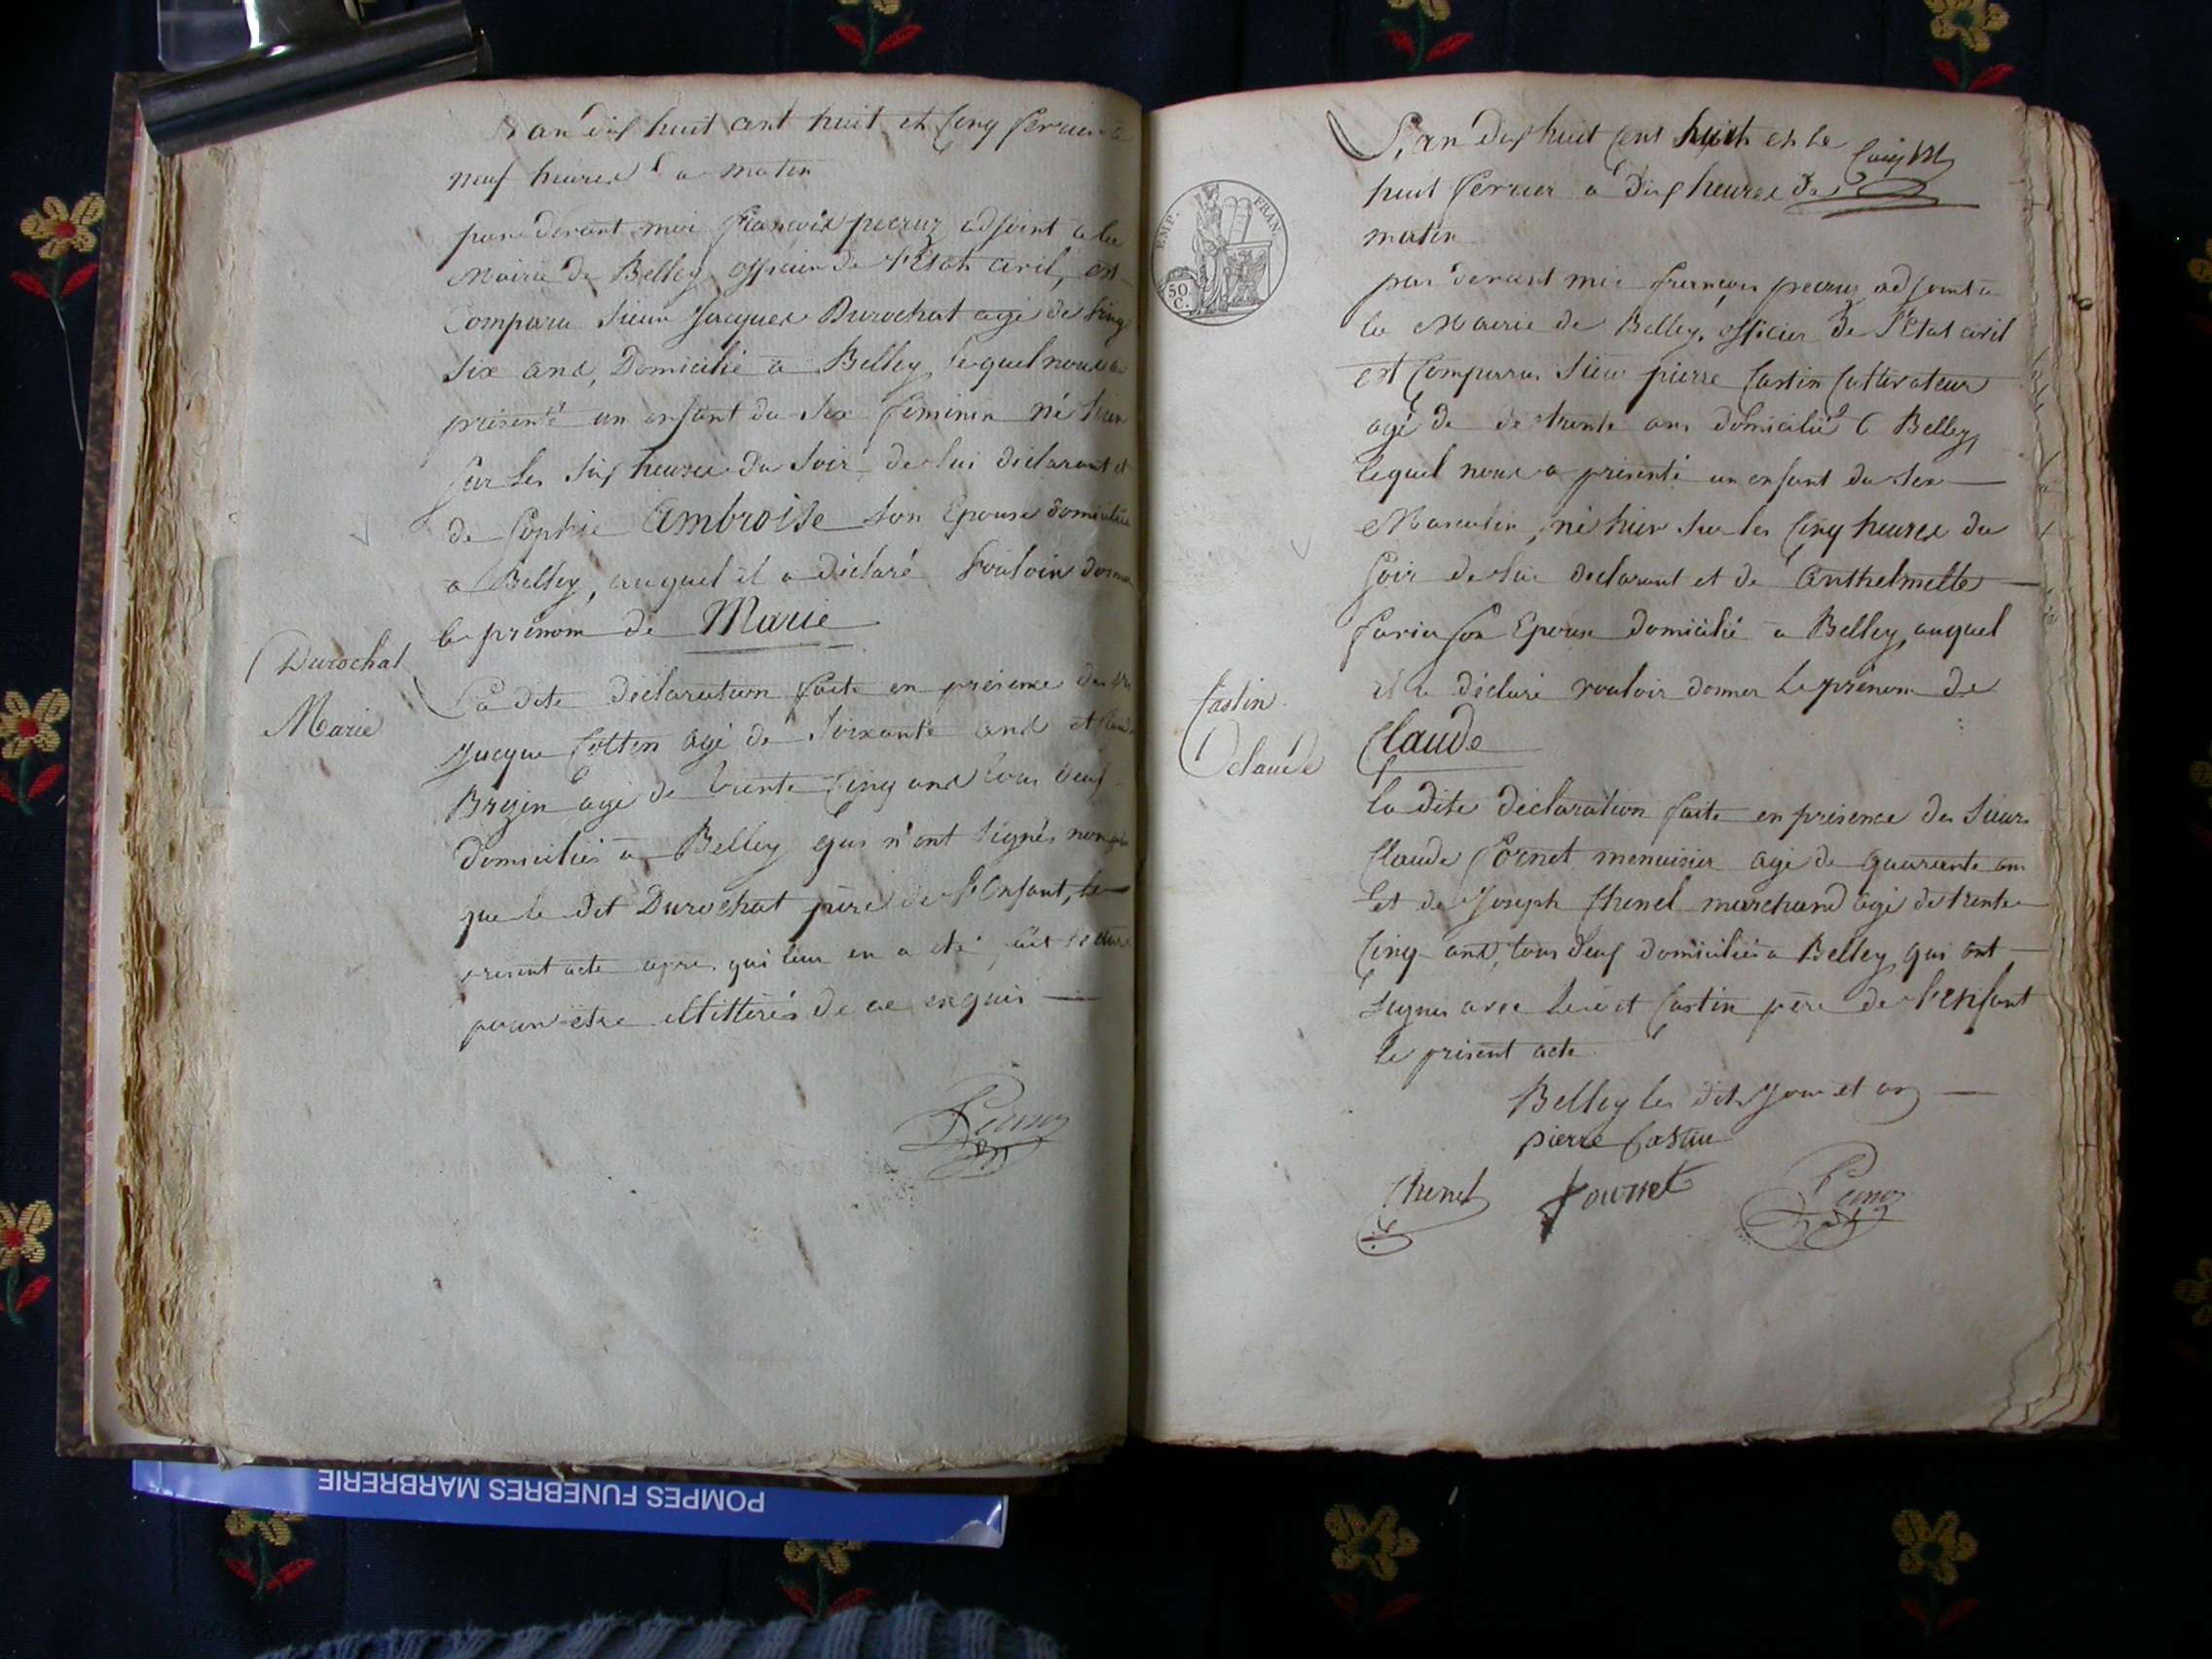 L'an dix huit cent huit et cinq fevrier à
neuf heures du matin
par devant moi François pecruz adjoint à la
Mairie de Belley officier de l'Etat civil, est
Comparu Sieur Jacques Durochat agé de
six ans, Domicilié à Belley lequel nous a
présenté un enfant du Sex feminin né hier
sur les six heures du Soir de lui déclarant et
de Sophie Ambroise son Epouse domiciliée
a Belley, auquel il a déclaré Vouloir donner
le prénom de Marie
Durochat
Marie
La dite déclaration faite en présence des
Jacque Cottin agé de Soixante ans et
agé de trente cinq ans tous deux
domiciliés à Belley qui n'ont signés non plus
que le dit Durochat père de l'Enfant, le
present acte apres qui leur en a été fait lecture
pour être illittérés de ce enquis
L'an dix huit cent huit et le
huit fevrier à dix heures du
matin
EMP. FRAN.
50 C.
par devant moi françois pecruz adjoint à
la Mairie de Belley, officier de l'Etat civil
est Comparru Sieur pierre Castin Cultivateur
agé de de trente ans domicilié à Belley
lequel nous a présenté un enfant du Sex
Masculin, né hier sur les cinq heures du
soir de lui déclarant et de Anthelmette
son Epouse domicilié à Belley, auquel
il a déclaré vouloir donner le prénom de
Castin
Claude
Claude
la dite déclaration faite en présence des Sieurs
Claude Cornet menuisier agé de quarante ans
et de Joseph Chenel marchand agé de trente
cinq ans, tous deux domiciliés à Belley qui ont
signés avec le dit Castin père de l'enfant
le présent acte
Belley les dits jour et an
pierre Castin
Chenel
POMPES FUNEBRES MARBRERIE